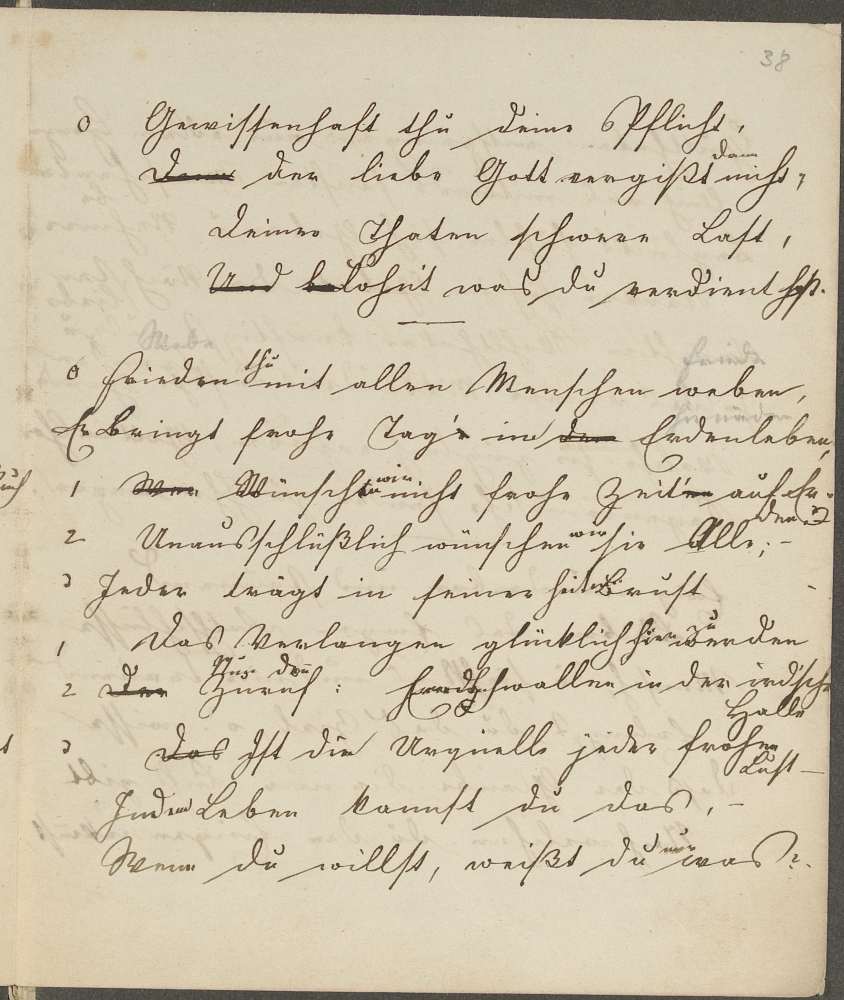 38
0 Gewissenhaft thu deine Pflicht,
Denn der liebe Gott vergißt dann nicht,
Deiner Thaten schwere Last,
Und belohnt was du verdient hast.
0 Frieden thu mit allen Menschen weben,
Er bringt frohe Tag'e in dem Erdenleben,
1 Wer Wünscht wir nicht frohe Zeiten auf Erden
2 Unausschlüßlich wünschen wir sie Alle; –
3 Jeder trägt in seiner Brust
1 Das Verlangen glücklich hier zu werden
2 Der Zuruf: schwallen in der ird'schen Halle
3 Das Ist die Urquelle jeder frohen Lust –
In dem Leben kannst du das, –
Wenn du willst, weißt du nur was?.